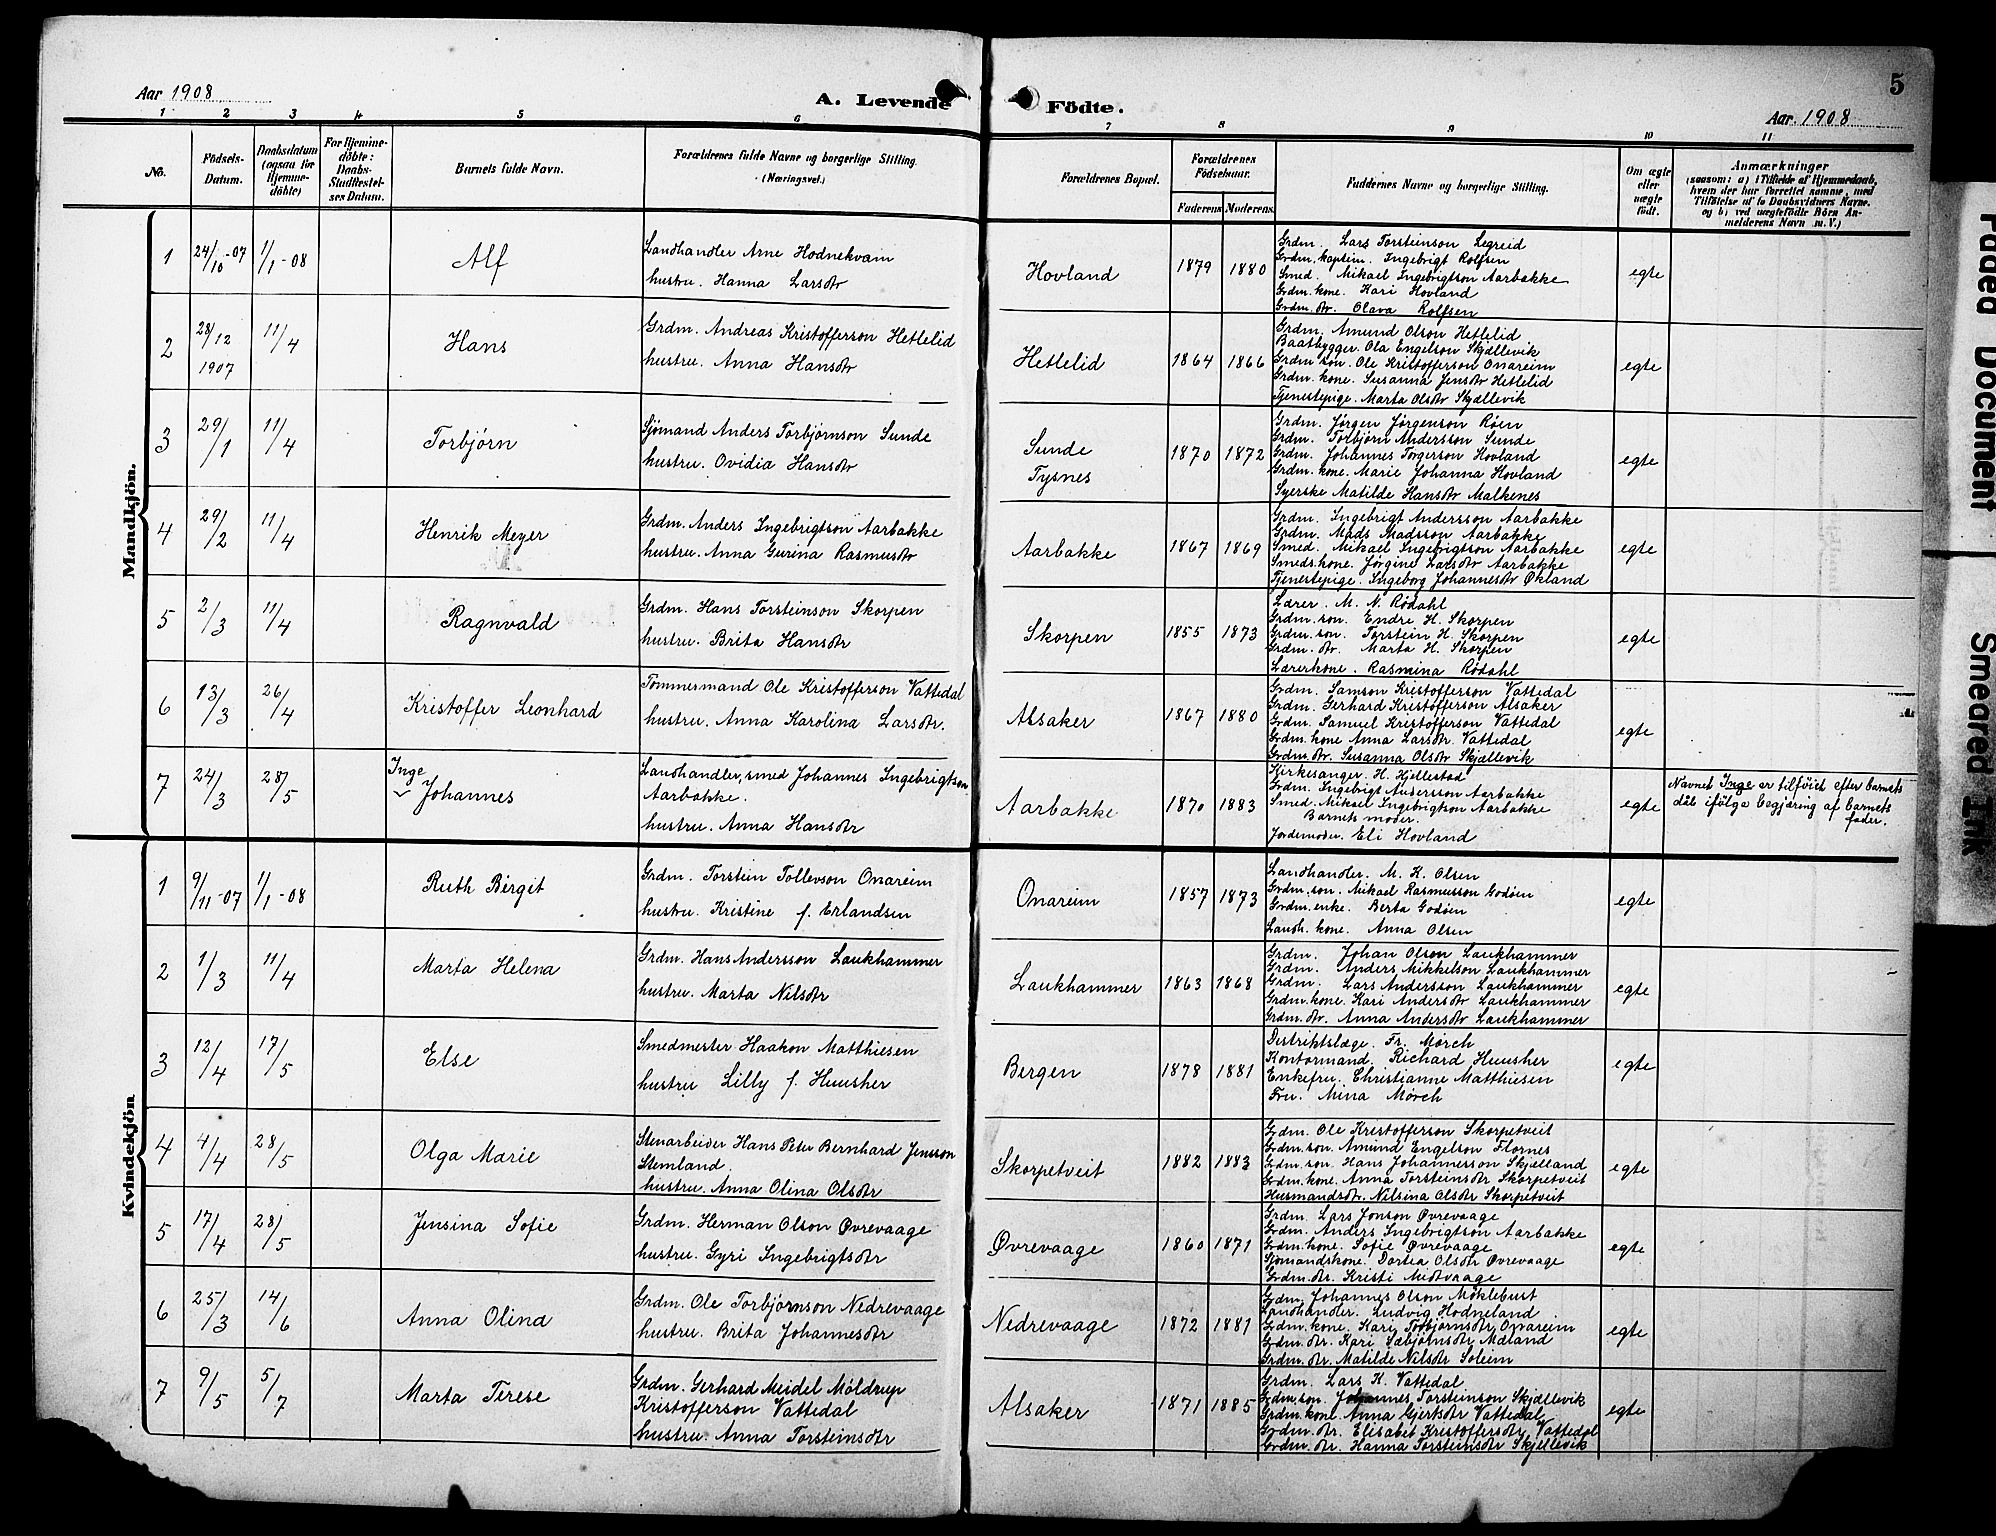 5
Aar 1908
A. Levende Födte.
Aar 1908
1 2 3 4 5 6 7 8 9 10 11
No.
Födsels-Datum.
Daabsdatum (ogsaa for Hjemme-döbte)
For Hjemme-döbte: Daabs-Stadfæstel-ses Datum.
Barnets fulde Navn.
Forældrenes fulde Navne og borgerlige Stilling. (Næringsvei.)
Forældrenes Bopæl.
Forældrenes Födselsaar.
Faderens Moderens
Faddernes Navne og borgerlige Stilling.
Om ægte eller uægte födt.
Anmærkninger
(saasom: a) i Tilfælde af Hjemmedaab,
hvem der har forrettet samme, med
Tilföielse af to Daabsvidners Navne.
og b) ved uægtefödte Börn An-
melderens Navn m. V.)
Mandkjön.
1 24/10-07 1/1-08 Alf
Landhandler Arne Hodnekvam
hustru. Hanna Larsdtr
Hovland 1879 1880
Grdm. Lars Torsteinson Legreid
Grdm. kaptein. Ingebrigt Rolfsen
Smed. Mikael Ingebrigtson Aarbakke
Grdm. kone. Kari Hovland
Grdm. dtr. Olava Rolfsen
egte
2 28/12 1907 11/4 Hans
Grdm. Andreas Kristofferson Hetlelid
hustru. Anna Hansdtr
Hetlelid 1864 1866
Grdm. Amund Olson Hetlelid
Baatbygger. Ola Engelson Skjællevik
Grdm. søn. Ole Kristofferson Onareim
Grdm. kone. Susanna Jensdtr Hetlelid
Tjenestepige. Marta Olsdtr Skjællevik
egte
3 29/1 11/4 Torbjörn
Sjömand Anders Torbjörnson Sunde
hustru. Ovidia Hansdtr
Sunde
Tysnes
1870 1872
Grdm. Jørgen Jørgenson Røen
Grdm. Torbjørn Andersson Sunde
Grdm. Johannes Torgerson Hovland
Grdm. kone. Marie Johanna Hovland
Syerske Matilde Hansdtr Malkenes
egte
4 29/2 11/4 Henrik Meyer
Grdm. Anders Ingebrigtson Aarbakke
hustru. Anna Gurina Rasmusdtr
Aarbakke 1867 1869
Grdm. Ingebrigt Andersson Aarbakke
Grdm. Mads Madsson Aarbakke
Smed. Mikael Ingebrigtson Aarbakke
Smeds.kone. Jørgine Larsdtr Aarbakke
Tjenestepige. Ingeborg Johannesdtr Økland
egte
5 2/3 11/4 Ragnvald
Grdm. Hans Torsteinson Skorpen
hustru. Brita Hansdtr
Skorpen 1855 1873
Lærer. M. N. Rødahl
Grdm. søn. Endre H. Skorpen
Grdm. søn. Torstein H. Skorpen
Grdm. dtr. Marta H. Skorpen
Lærerkone. Rasmina Rødahl
egte
6 13/3 26/4 Kristoffer Leonhard
Tömmermand Ole Kristofferson Vattedal
hustru. Anna Karolina Larsdtr.
Alsaker 1867 1880
Grdm. Samson Kristofferson Vattedal
Grdm. Gerhard Kristofferson Alsaker
Grdm. Samuel Kristofferson Vattedal
Grdm. kone Anna Larsdtr. Vattedal
Grdm. dtr. Susanna Olsdtr Skjællevik
egte
7 24/3 28/5 Inge
Johannes
Landhandler, smed Johannes Ingebrigtson
Aarbakke.
hustru. Anna Hansdtr
Aarbakke 1870 1883
Kirkesanger. H. Hjellestad
Grdm. Ingebrigt Andersson Aarbakke
Smed. Mikael Ingebrigtson Aarbakke
Barnets moder.
Jordemoder. Eli Hovland
egte
Navnet Inge er tilföiet efter barnets
dåb ifölge begjæring af barnets
fader.
Kvindekjön
1 9/11-07 1/1-08 Ruth Bergit
Grdm. Torstein Tollevson Onareim
hustru. Kristine f. Erlandsen
Onareim 1857 1873
Landhandler. M. K. Olsen
Grdm. søn. Mikael Rasmusson Godøen
Grdm. enke. Berta Godøen
Landh. kone. Anna Olsen
egte
2 1/3 11/4 Marta Helena
Grdm. Hans Andersson Laukhammer
hustru. Marta Nilsdtr
Laukhammer 1863 1868
Grdm. Johan Olson Laukhammer
Grdm. Anders Mikkelson Laukhammer
Grdm. Lars Andersson Laukhammer
Grdm. kone. Kari Andersdtr Laukhammer
Grdm. dtr. Anna Andersdtr Laukhammer
egte
3 12/4 17/5 Else
Smedmester Haakon Matthiesen
hustru Lilly f. Huusher
Bergen 1878 1881
Distriktslæge. Fr. Mørch
Kontormand. Richard Huusher
Enkefru. Christianne Matthiesen
Fru. Mina Mørch
egte
4 4/4 28/5 Olga Marie
Stenarbeider Hans Peter Bernhard Jensson
Stemland.
hustru. Anna Olina Olsdtr
Skorpetveit 1882 1883
Grdm. Ole Kristofferson Skorpetveit
Grdm. søn Amund Engelson Flornes
Grdm. søn. Hans Johannesson Skjelland
Grdm. kone. Anna Torsteinsdtr Skorpetveit
Husmandsdtr. Nilsina Olsdtr Skorpetveit
egte
5 17/4 28/5 Jensina Sofie
Grdm. Herman Olson Øvrevaage
hustru. Gyri Ingebrigtsdtr
Øvrevaage 1860 1871
Grdm. Lars Jonson Øvrevaage
Grdm. Anders Ingebrigtson Aarbakke
Grdm. kone. Sofie Øvrevaage
Sjømandskone. Dortea Olsdtr Øvrevaage
Grdm. dtr. Kristi Midtvaage
egte
6 25/3 14/6 Anna Olina
Grdm. Ole Torbjørnson Nedrevaage
hustru. Brita Johannesdtr
Nedrevaage 1872 1881
Grdm. Johannes Olson Möklebust
Landhandler. Ludvig Hodneland
Grdm. kone. Kari Torbjørnsdtr Onareim
Grdm. dtr. Kari Sæbjørnsdtr Mæland
Grdm. dtr. Matilde Nilsdtr Soleim
egte
7 9/5 5/7 Marta Terese
Grdm. Gerhard Meidel Möldrup
Kristofferson Vattedal
hustru. Anna Torsteinsdtr
Alsaker 1871 1885
Grdm. Lars K. Vattedal
Grdm. søn. Johannes Torsteinson Skjællevik
Grdm. kone. Anna Gjertsdtr Vattedal
Grdm. dtr. Elisabet Kristoffersdtr Vattedal
Grdm. dtr. Hanna Torsteinsdtr Skjellevik
egte
Faded Document
Smeared Ink